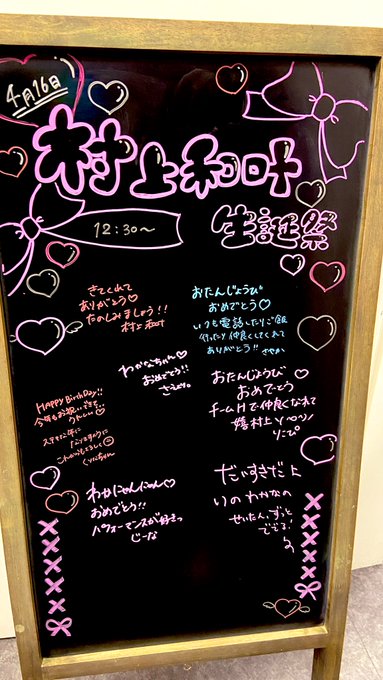 4月16日
村上和叶
12:30〜
生誕祭
きてくれて
ありがとう♡
たのしみましょう!!
村上和叶
おたんじょうび
おめでとう♡
いつも電話したりご飯
行ったり仲良くしてくれて
ありがとう!!
さやか
わかなちゃん♡
おめでとう!!
おたんじょうび♡
おめでとう
チームHで仲良くなれて
りこぴ
HAPPY BirthDay!!
今年もお祝いできて
うれしい♡
これからもよろしく
くりんちゃん
わかにゃんにゃん♡
おめでとう!!
パフォーマンスが好きっ
じーな
だいすきだよ
いのわかなの
せいたん、ずっと